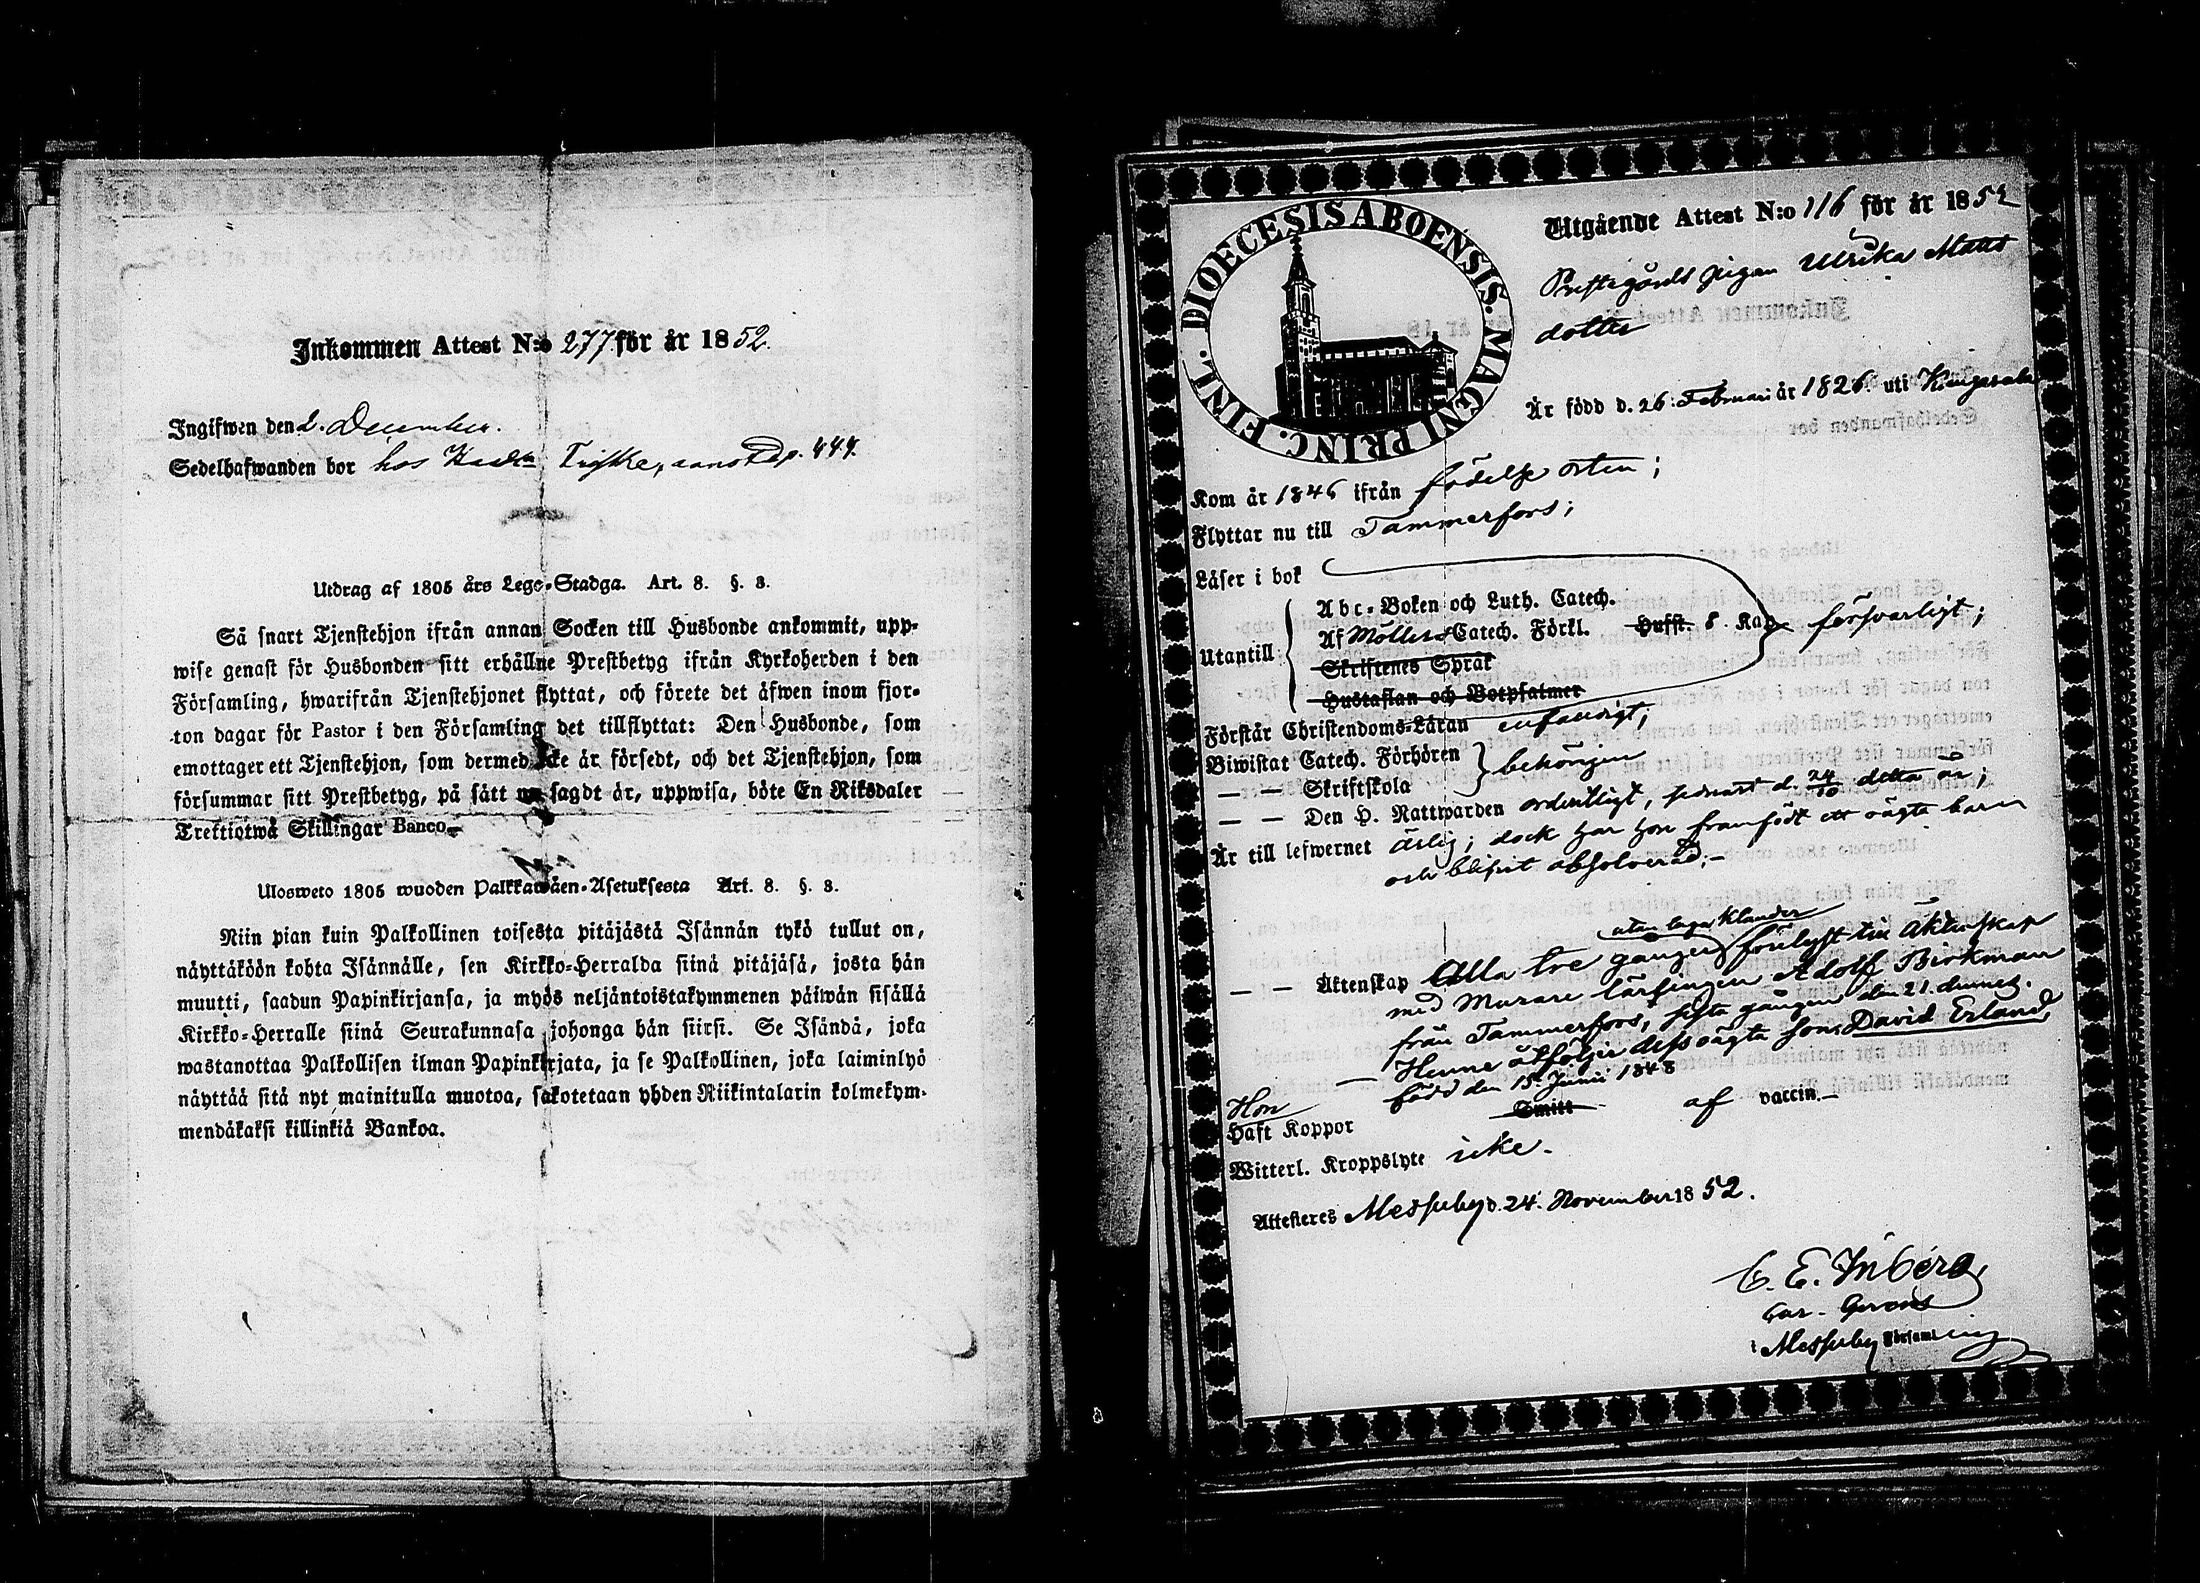 Inkommen Attest N:o 277 för år 1852.
Ingifwen den 2. December.
Sedelhafwanden bor hos p. 444.
Utdrag af 1805 års Lego-Stadga. Art. 8. §. 3.
Så snart Tjenstehjon ifrån annan Socken till Husbonde ankommit, upp-
wise genast för Husbonden sitt erhållne Prestbetyg ifrån Kyrkoherden i den
Församling, hwarifrån Tjenstehjonet flyttat, och förete det äfwen inom fjor-
ton dagar för Pastor i den Församling det tillflyttat: Den Husbonde, som
emottager ett Tjenstehjon, som dermed icke är försedt, och det Tjenstehjon, som
försummar sitt Prestbetyg, på sätt nu sagdt är, uppwisa, böte En Riksdaler
Trettiotwå Skillingar Banco.
Ulosweto 1805 wuoden Palkkawäen-Asetuksesta Art. 8. §. 3.
Niin pian kuin Palkollinen toisesta pitäjästä Isännän tykö tullut on,
näyttäköön kohta Isännälle, sen Kirkko-Herralda siinä pitäjäsä, josta hän
muutti, saadun Papinkirjansa, ja myös neljäntoistakymmenen päiwän sisällä
Kirkko-Herralle siinä Seurakunnasa johonga hän siirsi. Se Isändä, joka
wastanottaa Palkollisen ilman Papinkirjata, ja se Palkollinen, joka laiminlyö
näyttää sitä nyt mainitulla muotoa, sakotetaan yhden Riikintalarin kolmekym-
mendäkaksi killinkiä Bankoa.
DIOECESIS ABOENSIS. MAGNI PRINC. FINL.
Utgående Attest N:o 116 för år 1852
Prestgårds pigan Ulrika Matts
dotter
Är född d. 26. Februari år 1826. uti Kangasala
Kom år 1846 ifrån födelse orten;
Flyttar nu till Tammerfors;
Läser i bok
Utantill
Abc-Boken och Luth. Catech.
Af Möllers Catech. Förkl. Hufst. 8 Kap. försvarligt;
Skriftenes Språk
Hustaflan och Botpsalmer
Förstår Christendoms-Läran enfaldigt;
Biwistat Catech. Förhören
— — Skriftskola behörigen
— — Den H. Nattwarden ordentligt, senast d. 24/10 detta år;
Är till lefwernet ärlig; dock har hon framfödt ett oägta barn
och blifvit absolverad.-
utan laga klander
— — Äktenskap Alla tre gånger förelyst till Äktenskap
med Murare lärlingen Adolf Birkman
från Tammerfors, sista gången den 21. dennes.
— Henne åtföljer dess oägta son David Erland,
född den 15. Junii 1848
Hon
Haft Koppor Smitt af vaccin.-
Witterl. Kroppslyte icke.
Attesteres Messuby d. 24. November 1852.
C. E. Inberg,
Messuby Församling